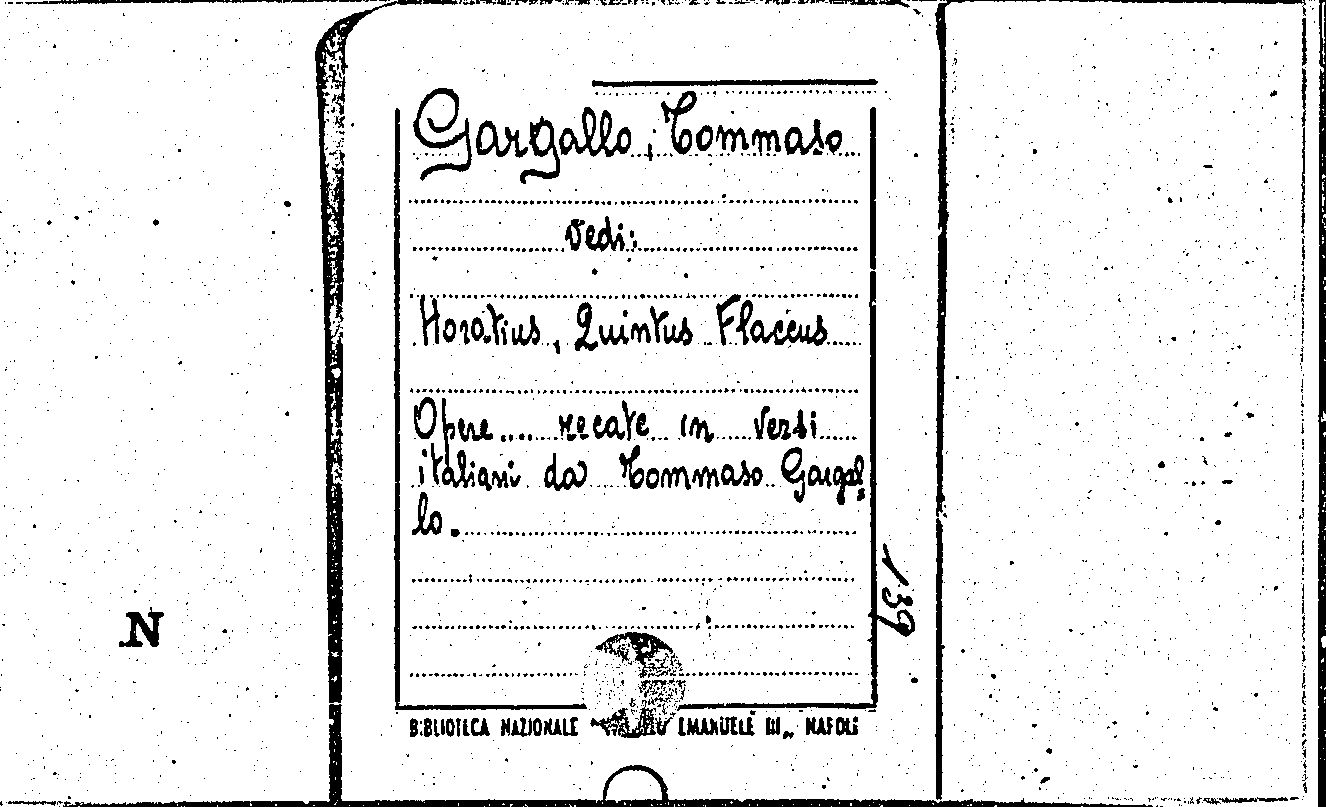 Gargallo, Tommaso
Vedi:
Horatius, Quintus Flaccus
Opere.... recate in versi
italiani da Tommaso Gargal=
lo.
139
N
BIBLIOTECA NAZIONALE EMANUELE III„ NAPOLI